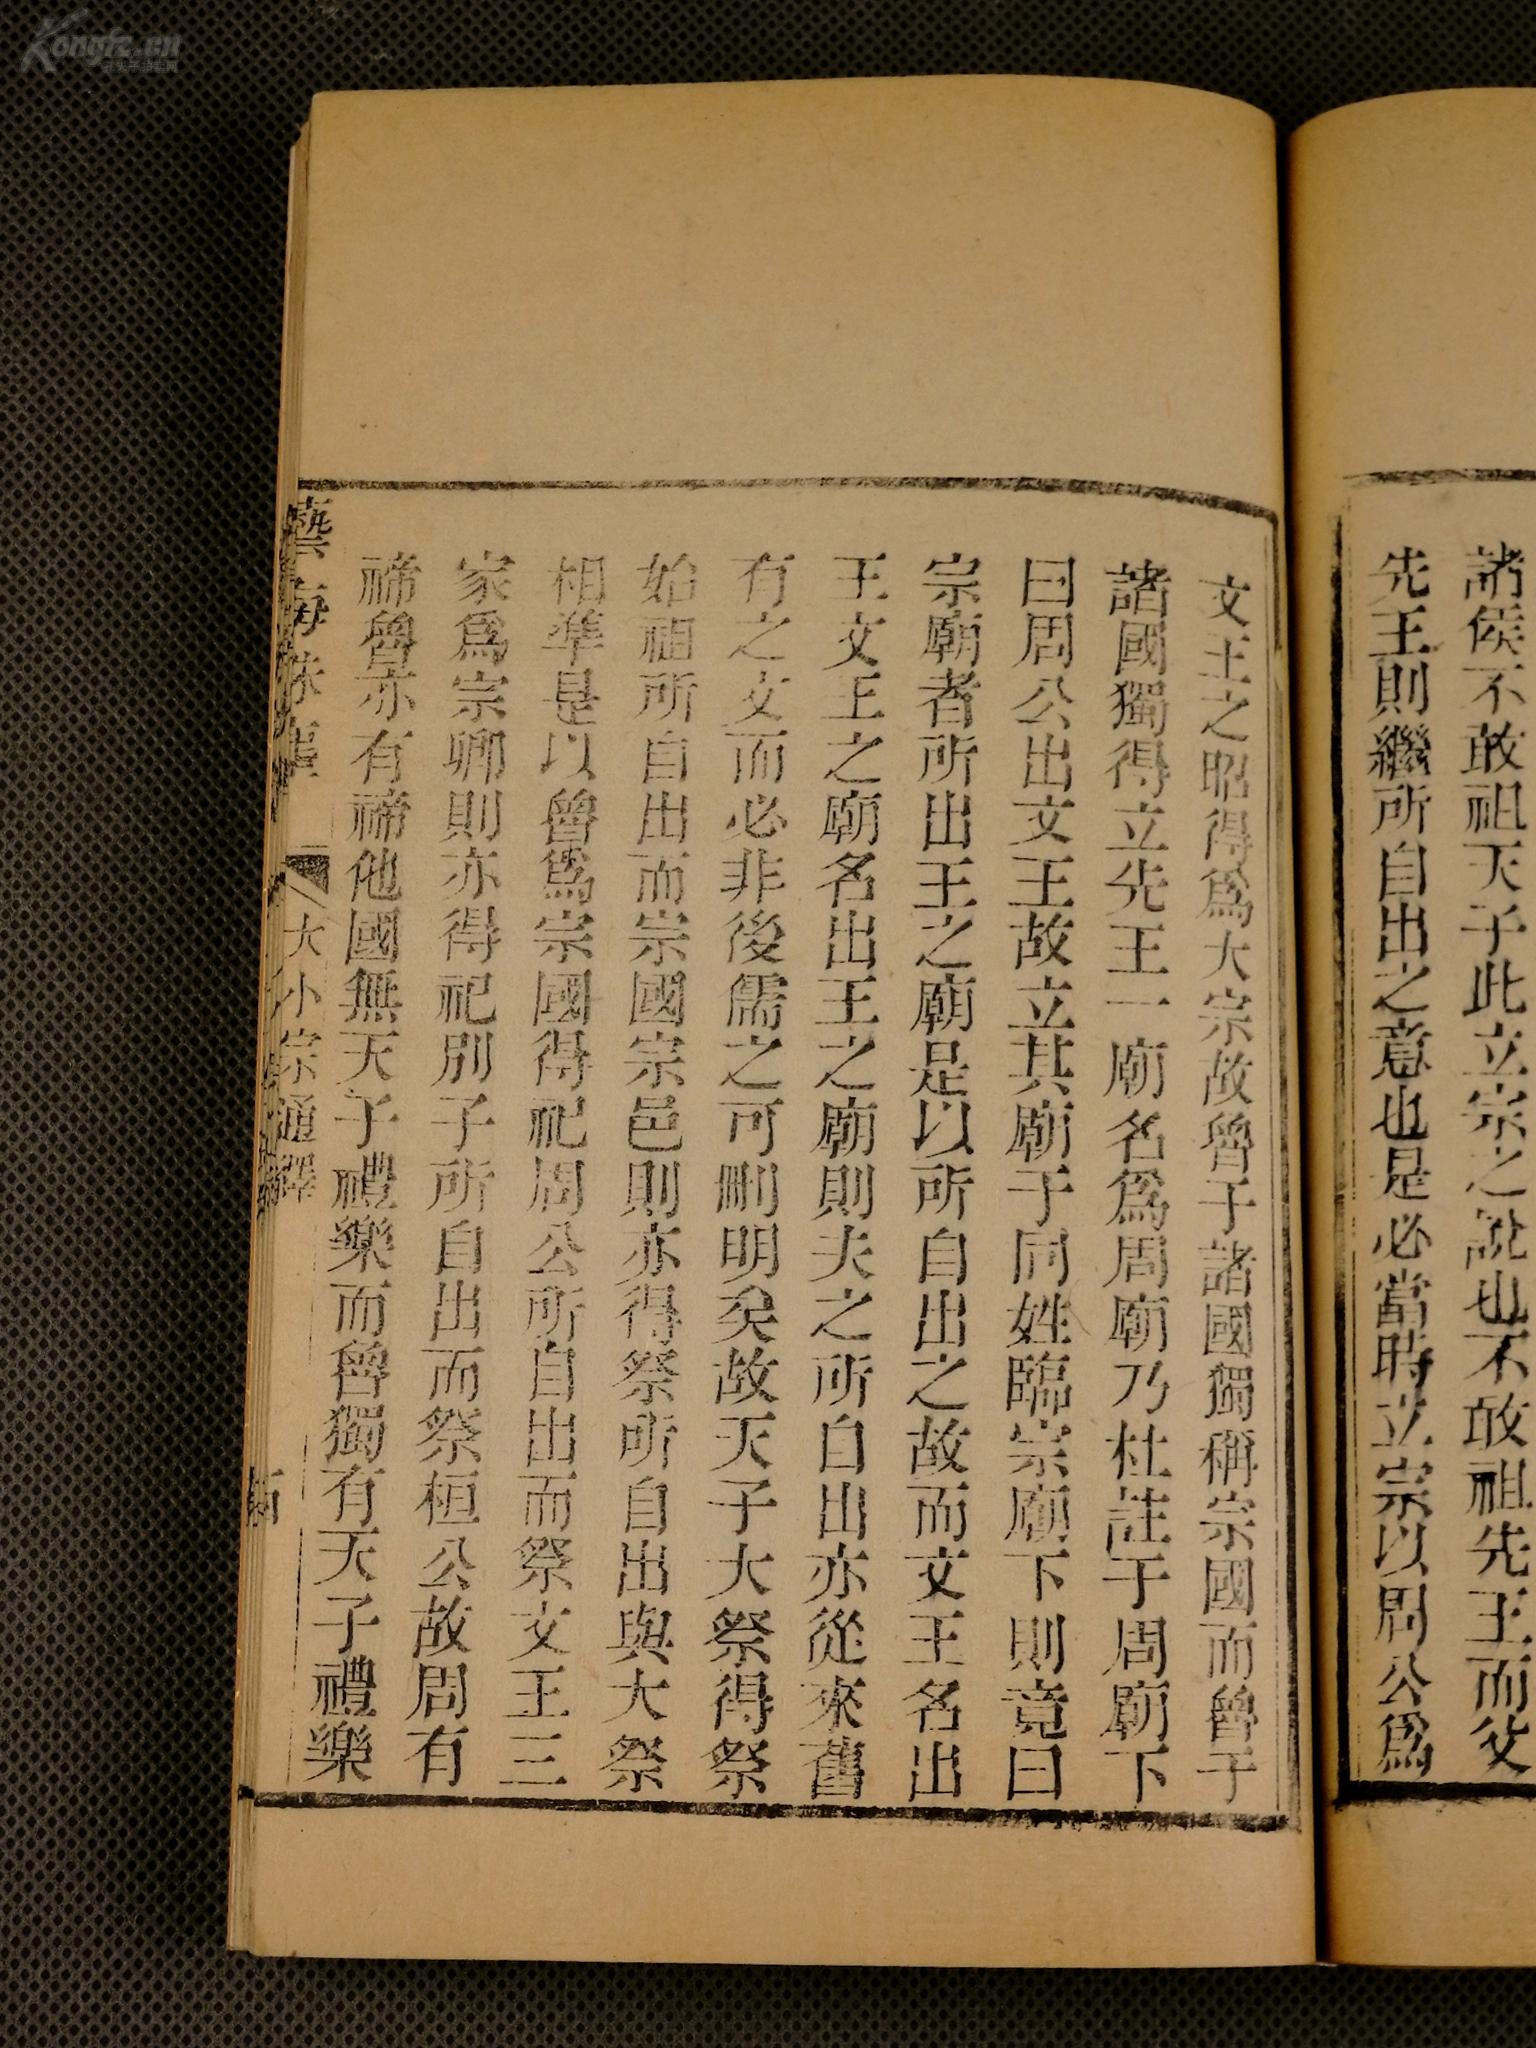 諸侯不敢祖天子此立宗之說也不敢祖先王而父
先王則繼所自出之意也是必當時立宗以周公爲
文王之昭得爲大宗故魯于諸國獨稱宗國而魯于
諸國獨得立先王一廟名爲周廟乃杜註于周廟下
曰周公出文王故立其廟于同姓臨宗廟下則竟曰
宗廟者所出王之廟是以所自出之故而文王名出
王文王之廟名出王之廟則夫之所自出亦從來舊
有之文而必非後儒之可刪明矣故天子大祭得祭
始祖所自出而宗國宗邑則亦得祭所自出與大祭
相準是以魯爲宗國得祀周公所自出而祭文王三
家爲宗卿則亦得祀別子所自出而祭桓公故周有
禘魯亦有禘他國無天子禮樂而魯獨有天子禮樂
藝海珠塵
大小宗通繹
Kongfz.cn
孔夫子拍卖网